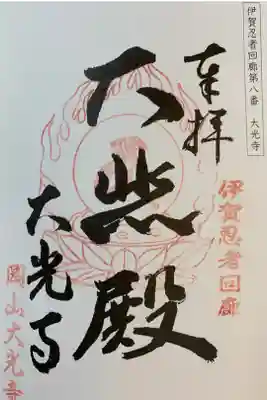 伊賀忍者回廊第八番 大光寺
奉拝
伊賀忍者回廊
大悲殿
大光寺
山大光寺